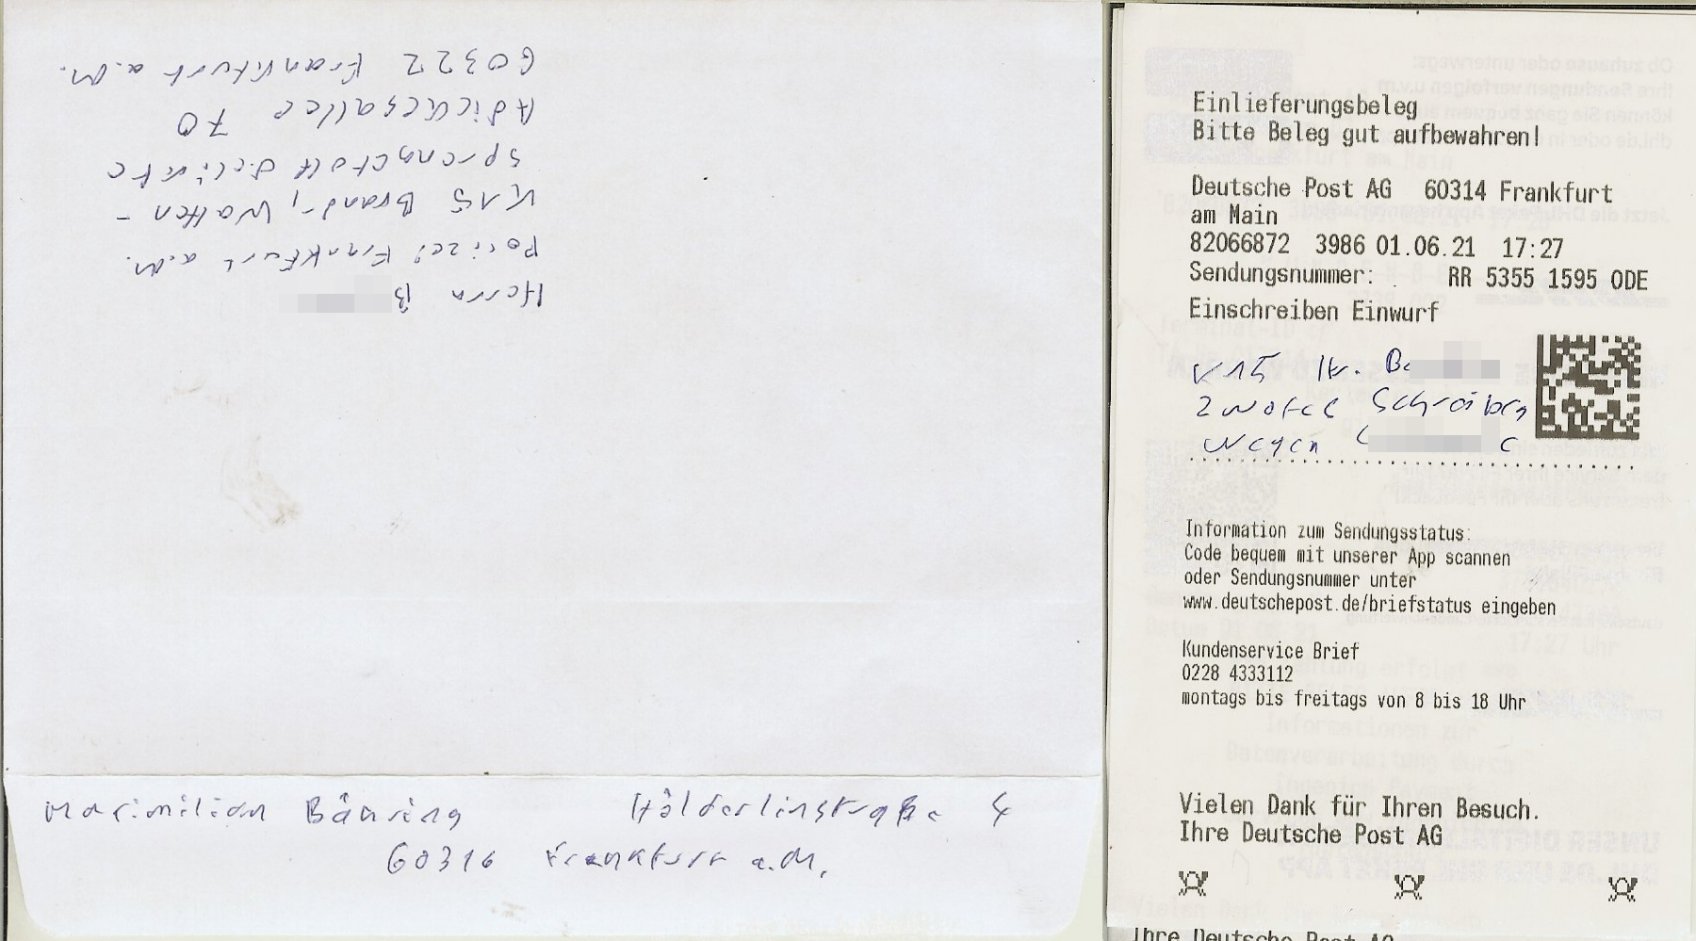 Herrn B
Polizei Frankfurt a.M.
K15 Brand-, Waffen-
Sprengstoffdelikte
Adickesallee 70
60322 Frankfurt a.M.
Maximilian Bähring Hölderlinstraße 4
60316 Frankfurt a.M.
Einlieferungsbeleg
Bitte Beleg gut aufbewahren!
Deutsche Post AG 60314 Frankfurt
am Main
82066872 3986 01.06.21 17:27
Sendungsnummer: RR 5355 1595 0DE
Einschreiben Einwurf
K15 Hr. B
Schreiben
wegen
Information zum Sendungsstatus:
Code bequem mit unserer App scannen
oder Sendungsnummer unter
www.deutschepost.de/briefstatus eingeben
Kundenservice Brief
0228 4333112
montags bis freitags von 8 bis 18 Uhr
Vielen Dank für Ihren Besuch.
Ihre Deutsche Post AG
Ihre Deutsche Post AG